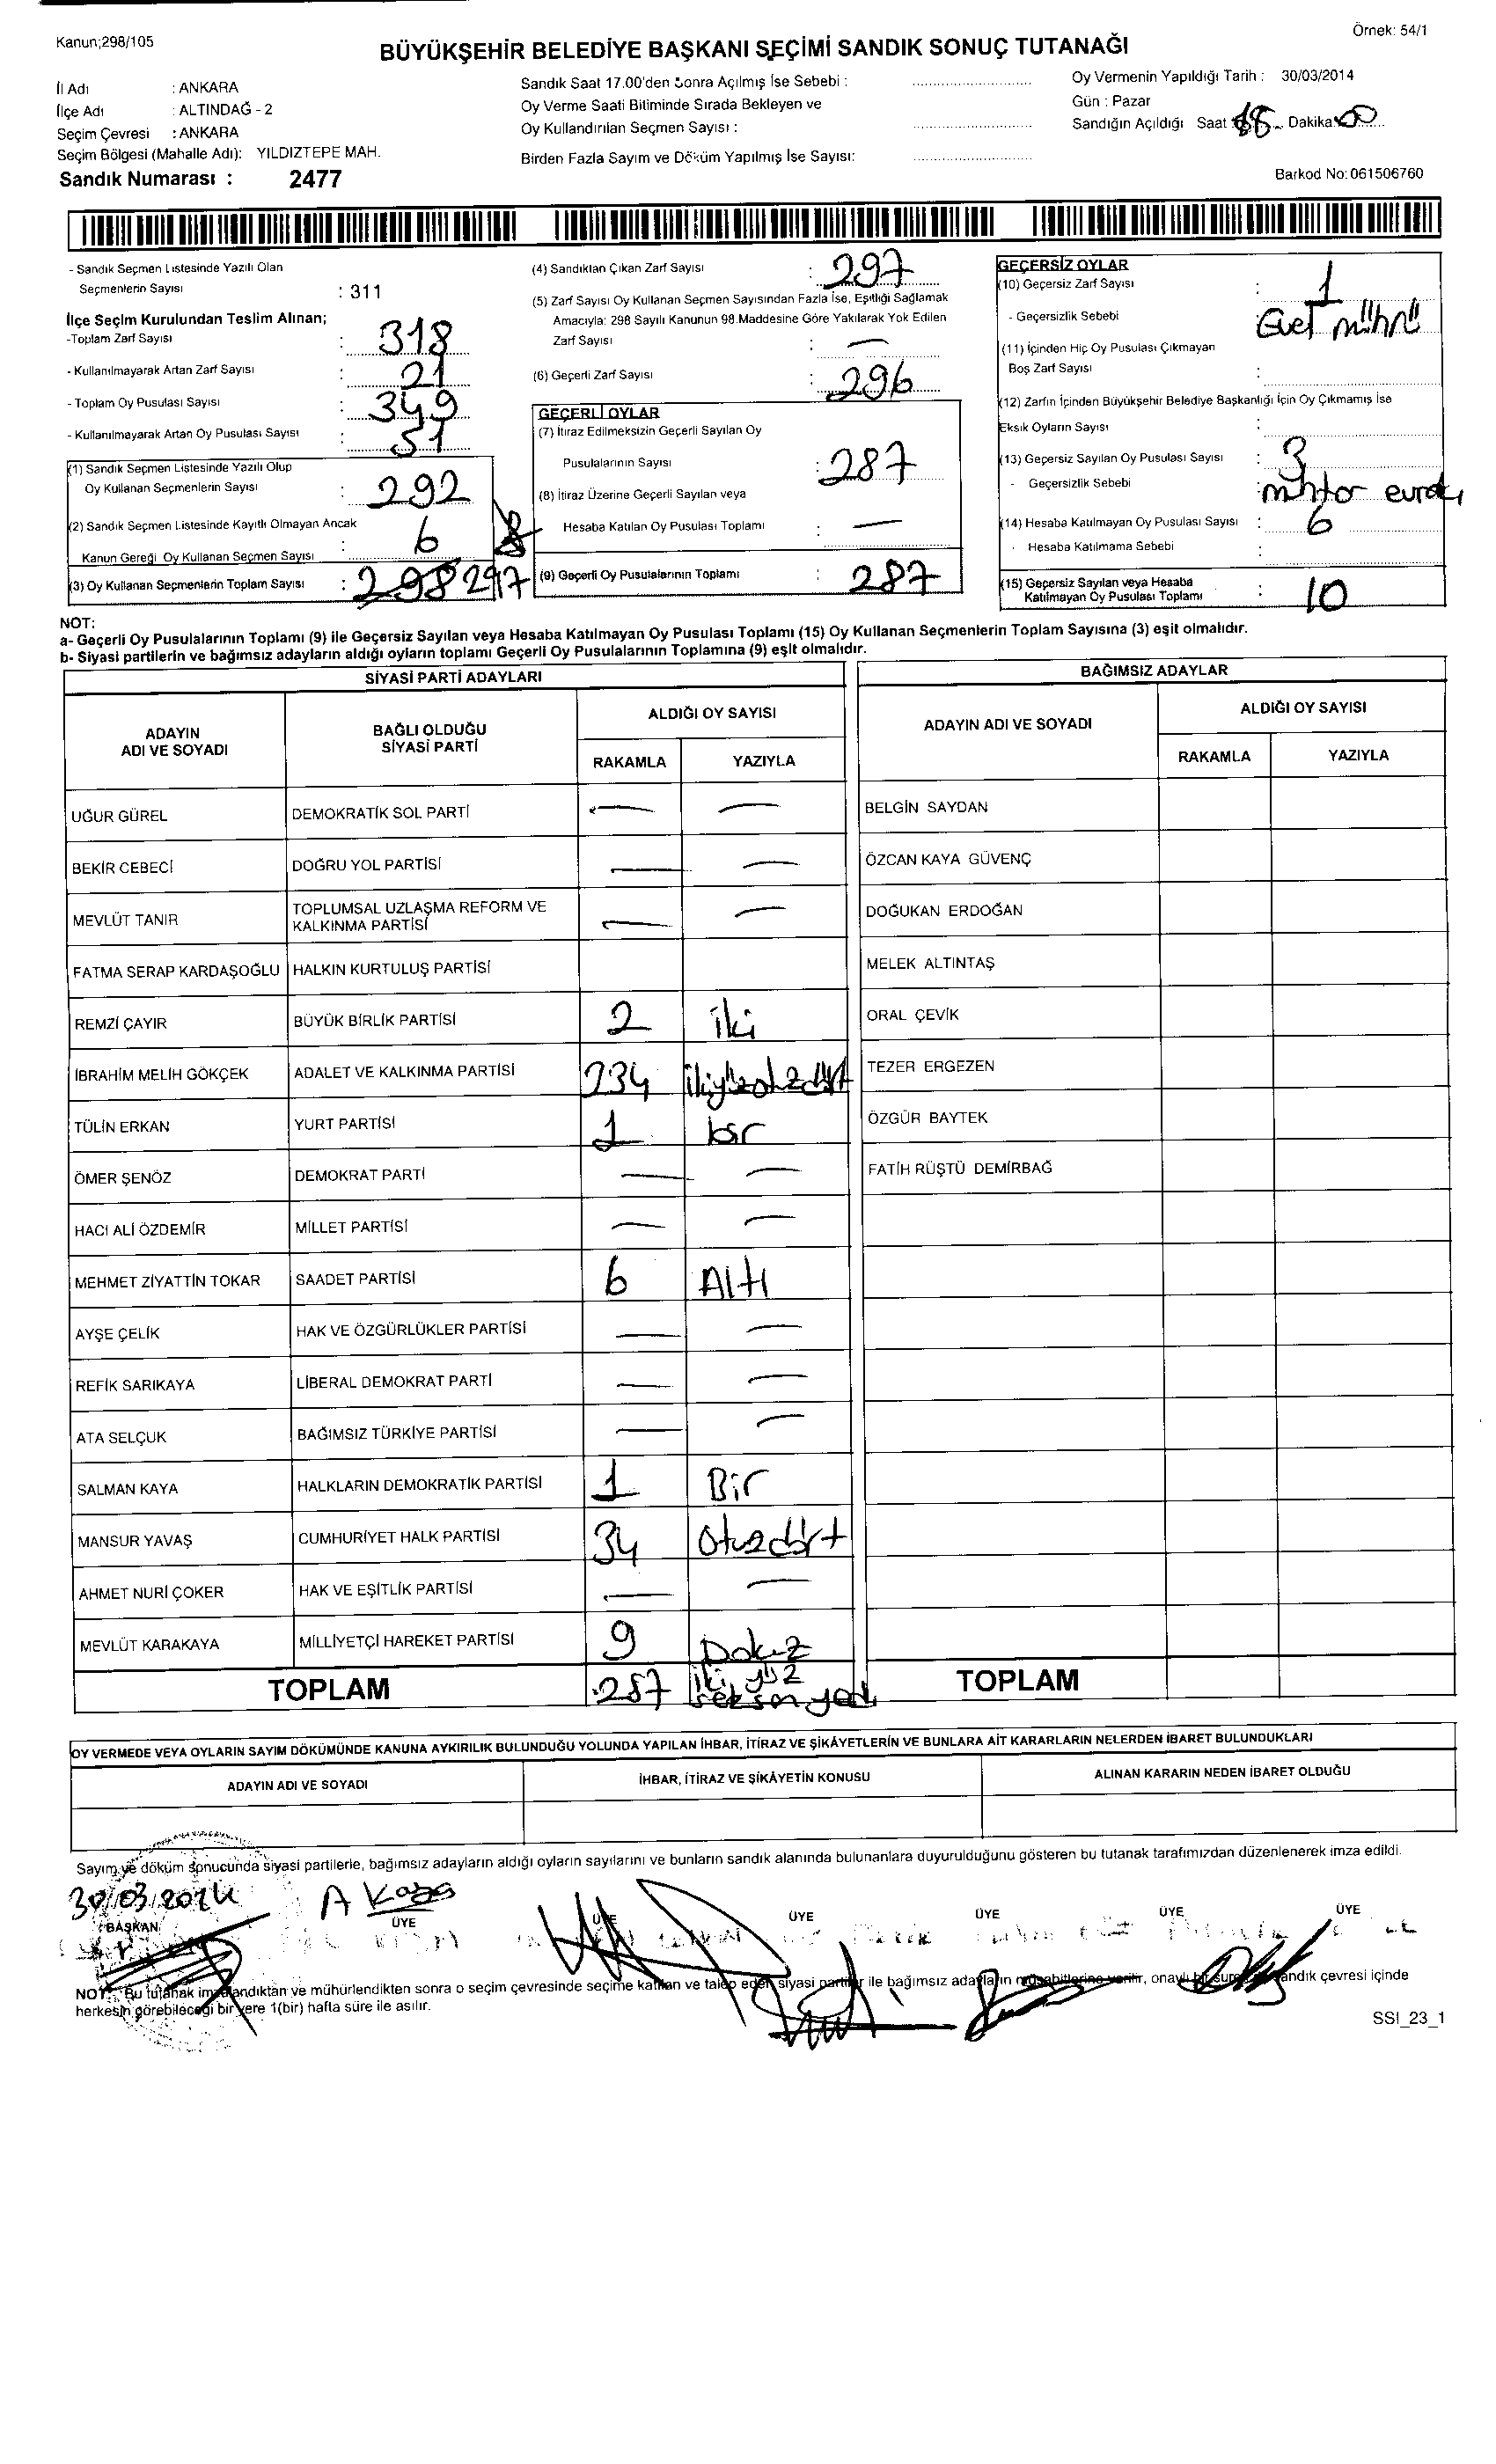 Kanun;298/105
Örnek: 54/1
BÜYÜKŞEHİR BELEDİYE BAŞKANI SEÇİMİ SANDIK SONUÇ TUTANAĞI
İl Adı : ANKARA
İlçe Adı : ALTINDAĞ - 2
Seçim Çevresi : ANKARA
Seçim Bölgesi (Mahalle Adı): YILDIZTEPE MAH.
Sandık Numarası : 2477
Sandık Saat 17.00'den Sonra Açılmış İse Sebebi :
Oy Verme Saati Bitiminde Sırada Bekleyen ve
Oy Kullandırılan Seçmen Sayısı :
Birden Fazla Sayım ve Döküm Yapılmış İse Sayısı:
Oy Vermenin Yapıldığı Tarih : 30/03/2014
Gün : Pazar
Sandığın Açıldığı Saat Dakika 00
Barkod No: 061506760
- Sandık Seçmen Listesinde Yazılı Olan
Seçmenlerin Sayısı : 311
İlçe Seçim Kurulundan Teslim Alınan;
-Toplam Zarf Sayısı : 318
- Kullanılmayarak Artan Zarf Sayısı : 21
- Toplam Oy Pusulası Sayısı : 349
- Kullanılmayarak Artan Oy Pusulası Sayısı : 51
(1) Sandık Seçmen Listesinde Yazılı Olup
Oy Kullanan Seçmenlerin Sayısı : 292
(2) Sandık Seçmen Listesinde Kayıtlı Olmayan Ancak
Kanun Gereği Oy Kullanan Seçmen Sayısı : 6
(3) Oy Kullanan Seçmenlerin Toplam Sayısı : 298 297
(4) Sandıktan Çıkan Zarf Sayısı : 297
(5) Zarf Sayısı Oy Kullanan Seçmen Sayısından Fazla İse, Eşitliği Sağlamak
Amacıyla: 298 Sayılı Kanunun 98.Maddesine Göre Yakılarak Yok Edilen
Zarf Sayısı : —
(6) Geçerli Zarf Sayısı : 296
GEÇERLİ OYLAR
(7) İtiraz Edilmeksizin Geçerli Sayılan Oy
Pusulalarının Sayısı : 287
(8) İtiraz Üzerine Geçerli Sayılan veya
Hesaba Katılan Oy Pusulası Toplamı : —
(9) Geçerli Oy Pusulalarının Toplamı : 287
GEÇERSİZ OYLAR
(10) Geçersiz Zarf Sayısı : 1
- Geçersizlik Sebebi Evet mührü
(11) İçinden Hiç Oy Pusulası Çıkmayan
Boş Zarf Sayısı :
(12) Zarfın İçinden Büyükşehir Belediye Başkanlığı İçin Oy Çıkmamış İse
Eksik Oyların Sayısı :
(13) Geçersiz Sayılan Oy Pusulası Sayısı : 3
- Geçersizlik Sebebi : mhtar evrakı
(14) Hesaba Katılmayan Oy Pusulası Sayısı : 6
- Hesaba Katılmama Sebebi :
(15) Geçersiz Sayılan veya Hesaba
Katılmayan Oy Pusulası Toplamı : 10
NOT:
a- Geçerli Oy Pusulalarının Toplamı (9) ile Geçersiz Sayılan veya Hesaba Katılmayan Oy Pusulası Toplamı (15) Oy Kullanan Seçmenlerin Toplam Sayısına (3) eşit olmalıdır.
b- Siyasi partilerin ve bağımsız adayların aldığı oyların toplamı Geçerli Oy Pusulalarının Toplamına (9) eşit olmalıdır.
SİYASİ PARTİ ADAYLARI
ADAYIN ADI VE SOYADI
BAĞLI OLDUĞU SİYASİ PARTİ
ALDIĞI OY SAYISI
RAKAMLA YAZIYLA
UĞUR GÜREL DEMOKRATİK SOL PARTİ — —
BEKİR CEBECİ DOĞRU YOL PARTİSİ — —
MEVLÜT TANIR TOPLUMSAL UZLAŞMA REFORM VE KALKINMA PARTİSİ — —
FATMA SERAP KARDAŞOĞLU HALKIN KURTULUŞ PARTİSİ
REMZİ ÇAYIR BÜYÜK BİRLİK PARTİSİ 2 iki
İBRAHİM MELİH GÖKÇEK ADALET VE KALKINMA PARTİSİ 234 ikiyüzotuzdört
TÜLİN ERKAN YURT PARTİSİ 1 bir
ÖMER ŞENÖZ DEMOKRAT PARTİ — —
HACI ALİ ÖZDEMİR MİLLET PARTİSİ — —
MEHMET ZİYATTİN TOKAR SAADET PARTİSİ 6 Altı
AYŞE ÇELİK HAK VE ÖZGÜRLÜKLER PARTİSİ — —
REFİK SARIKAYA LİBERAL DEMOKRAT PARTİ — —
ATA SELÇUK BAĞIMSIZ TÜRKİYE PARTİSİ — —
SALMAN KAYA HALKLARIN DEMOKRATİK PARTİSİ 1 Bir
MANSUR YAVAŞ CUMHURİYET HALK PARTİSİ 34 Otuzdört
AHMET NURİ ÇOKER HAK VE EŞİTLİK PARTİSİ — —
MEVLÜT KARAKAYA MİLLİYETÇİ HAREKET PARTİSİ 9 Dokuz
TOPLAM 287 iki yüz seksen yedi
BAĞIMSIZ ADAYLAR
ADAYIN ADI VE SOYADI
ALDIĞI OY SAYISI
RAKAMLA YAZIYLA
BELGİN SAYDAN
ÖZCAN KAYA GÜVENÇ
DOĞUKAN ERDOĞAN
MELEK ALTINTAŞ
ORAL ÇEVİK
TEZER ERGEZEN
ÖZGÜR BAYTEK
FATİH RÜŞTÜ DEMİRBAĞ
TOPLAM
OY VERMEDE VEYA OYLARIN SAYIM DÖKÜMÜNDE KANUNA AYKIRILIK BULUNDUĞU YOLUNDA YAPILAN İHBAR, İTİRAZ VE ŞİKÂYETLERİN VE BUNLARA AİT KARARLARIN NELERDEN İBARET BULUNDUKLARI
ADAYIN ADI VE SOYADI
İHBAR, İTİRAZ VE ŞİKÂYETİN KONUSU
ALINAN KARARIN NEDEN İBARET OLDUĞU
Sayım ve döküm sonucunda siyasi partilerle, bağımsız adayların aldığı oyların sayılarını ve bunların sandık alanında bulunanlara duyurulduğunu gösteren bu tutanak tarafımızdan düzenlenerek imza edildi.
30/03/2014
BAŞKAN ÜYE ÜYE ÜYE ÜYE ÜYE ÜYE
NOT: Bu tutanak imzalandıktan ve mühürlendikten sonra o seçim çevresinde seçime katılan ve talep eden siyasi partiler ile bağımsız adayların müşahitlerine verilir, onaylı bir sureti sandık çevresi içinde
herkesin görebileceği bir yere 1(bir) hafta süre ile asılır.
SSI_23_1